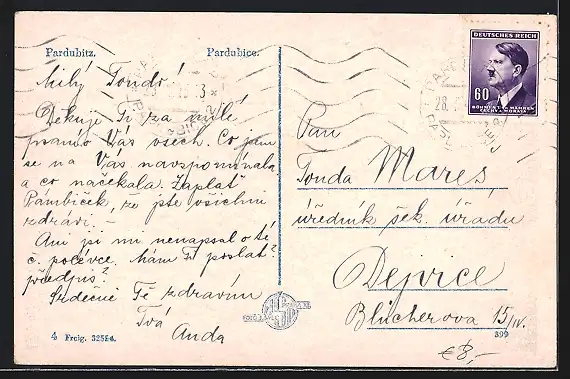 Pardubitz. Pardubice.
Milý Tondo!
Děkuji Ti za milé
psaní Vás všech. Co jsem
se na Vás navzpomínala
a co načekala. Zaplať
Pámbíček, že jste všichni
zdrávi. –
Ani jsi mi nenapsal o té
č. polévce. Mám Ti poslat?
předpis?
Srdečně Tě zdravím
Tvá
Anda
4 Freig. 3255
DEUTSCHES REICH
60
BÖHMEN U. MÄHREN
ČECHY A MORAVA
28.
Pan
Tonda Mareš
úředník šek. úřadu
Dejvice
Blücherova 15/IV.
399
€8,-